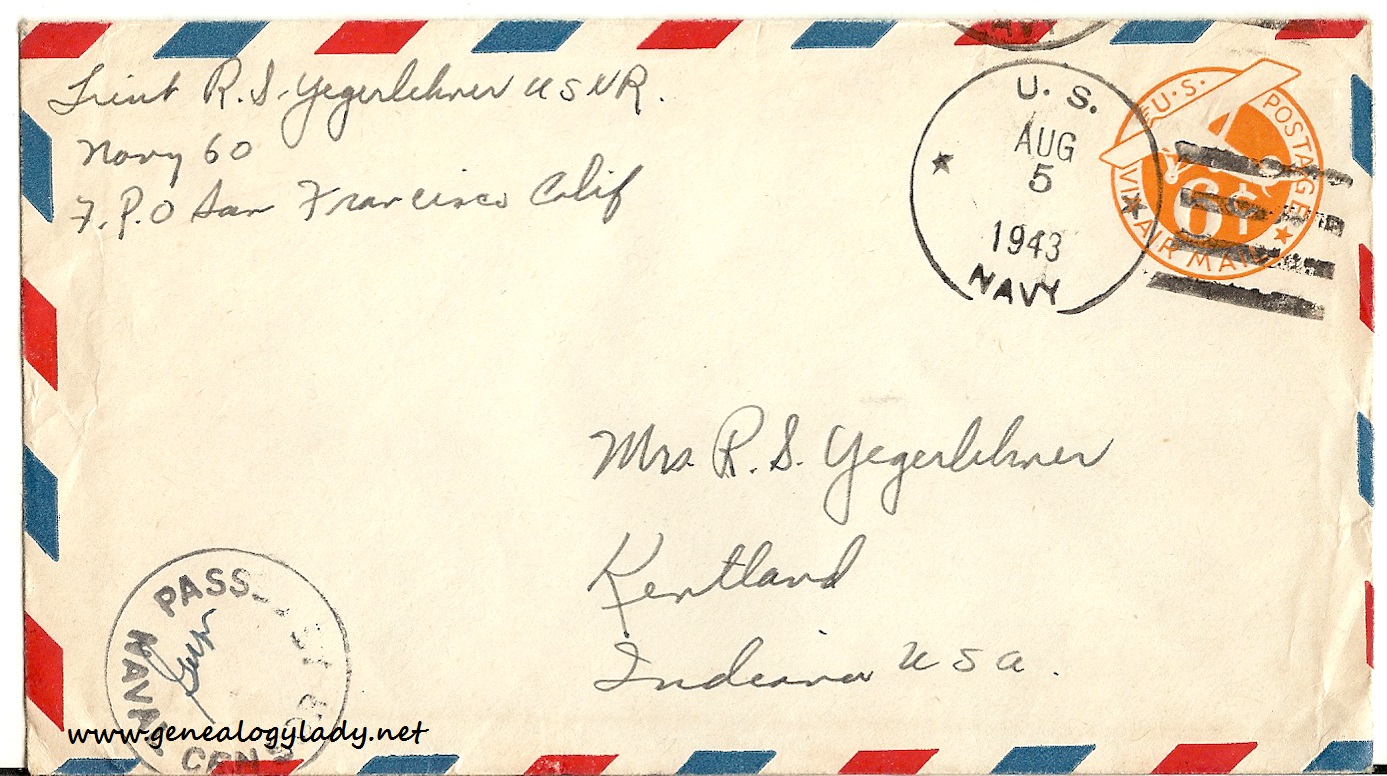 Lieut R. S. Yegerlehner USNR.
Navy 60
F.P.O San Francisco Calif
NAVY
U. S.
AUG
5
1943
NAVY
U.S. POSTAGE
6¢
VIA AIR MAIL
Mrs R. S. Yegerlehner
Kentland
Indiana USA.
PASSED BY
NAVAL CENS
www.genealogylady.net